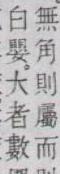 無角則屬而
白嬰。大者數